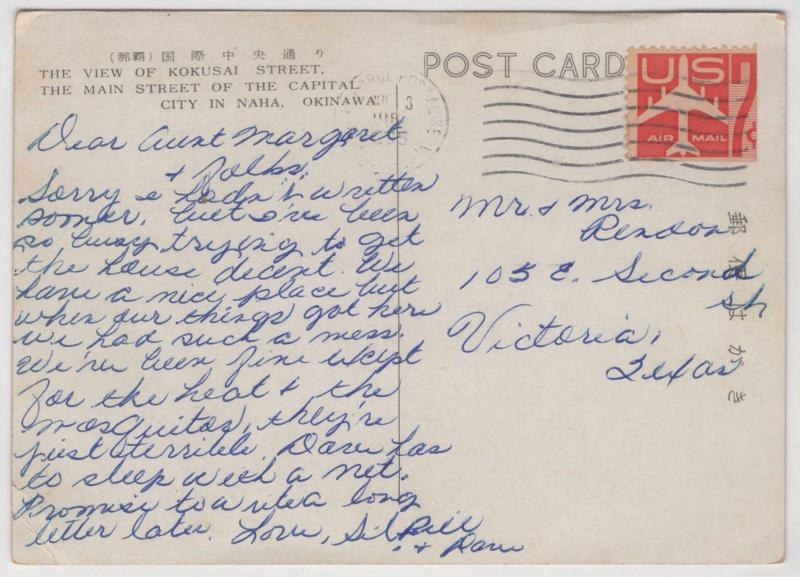 (那覇) 国際中央通り
THE VIEW OF KOKUSAI STREET,
THE MAIN STREET OF THE CAPITAL
CITY IN NAHA, OKINAWA
Dear Aunt Margaret
+ folks,
Sorry I hadn't written
sooner, but I've been
so busy trying to get
the house decent. We
have a nice place but
when our things got here
we had such a mess.
We've been fine except
for the heat & the
mosquitos, they're
just terrible. Dave has
to sleep with a net.
Promise to write a long
letter later. Love, Sil, Bill
+ Dave
POST CARD
US
AIR MAIL
7
Mr. & Mrs.
Rendon
105 E. Second
st
Victoria,
Texas
郵便はがき